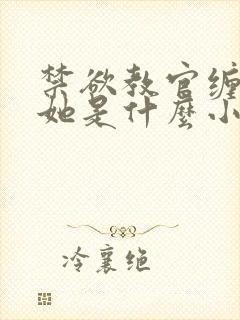 禁欲教官缠
她是什麼小
冷襄绝